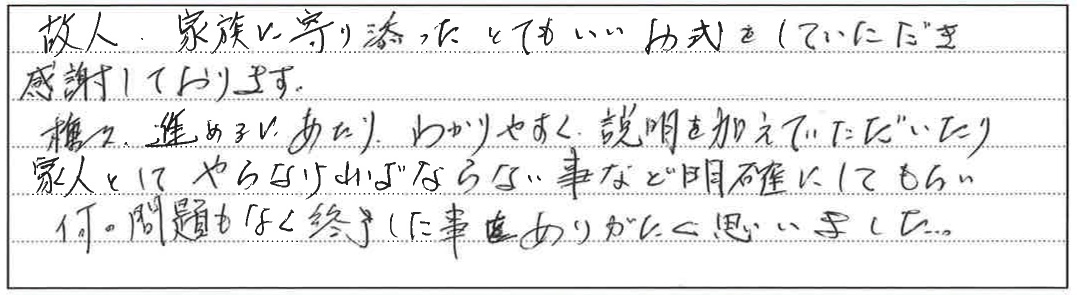 故人、家族に寄り添ったとてもいいお式をしていただき
感謝しております。
様々、進めるにあたり、わかりやすく、説明を加えていただいたり
家人としてやらなければならない事など明確にしてもらい
何の問題もなく終了した事をありがたく思いました…。